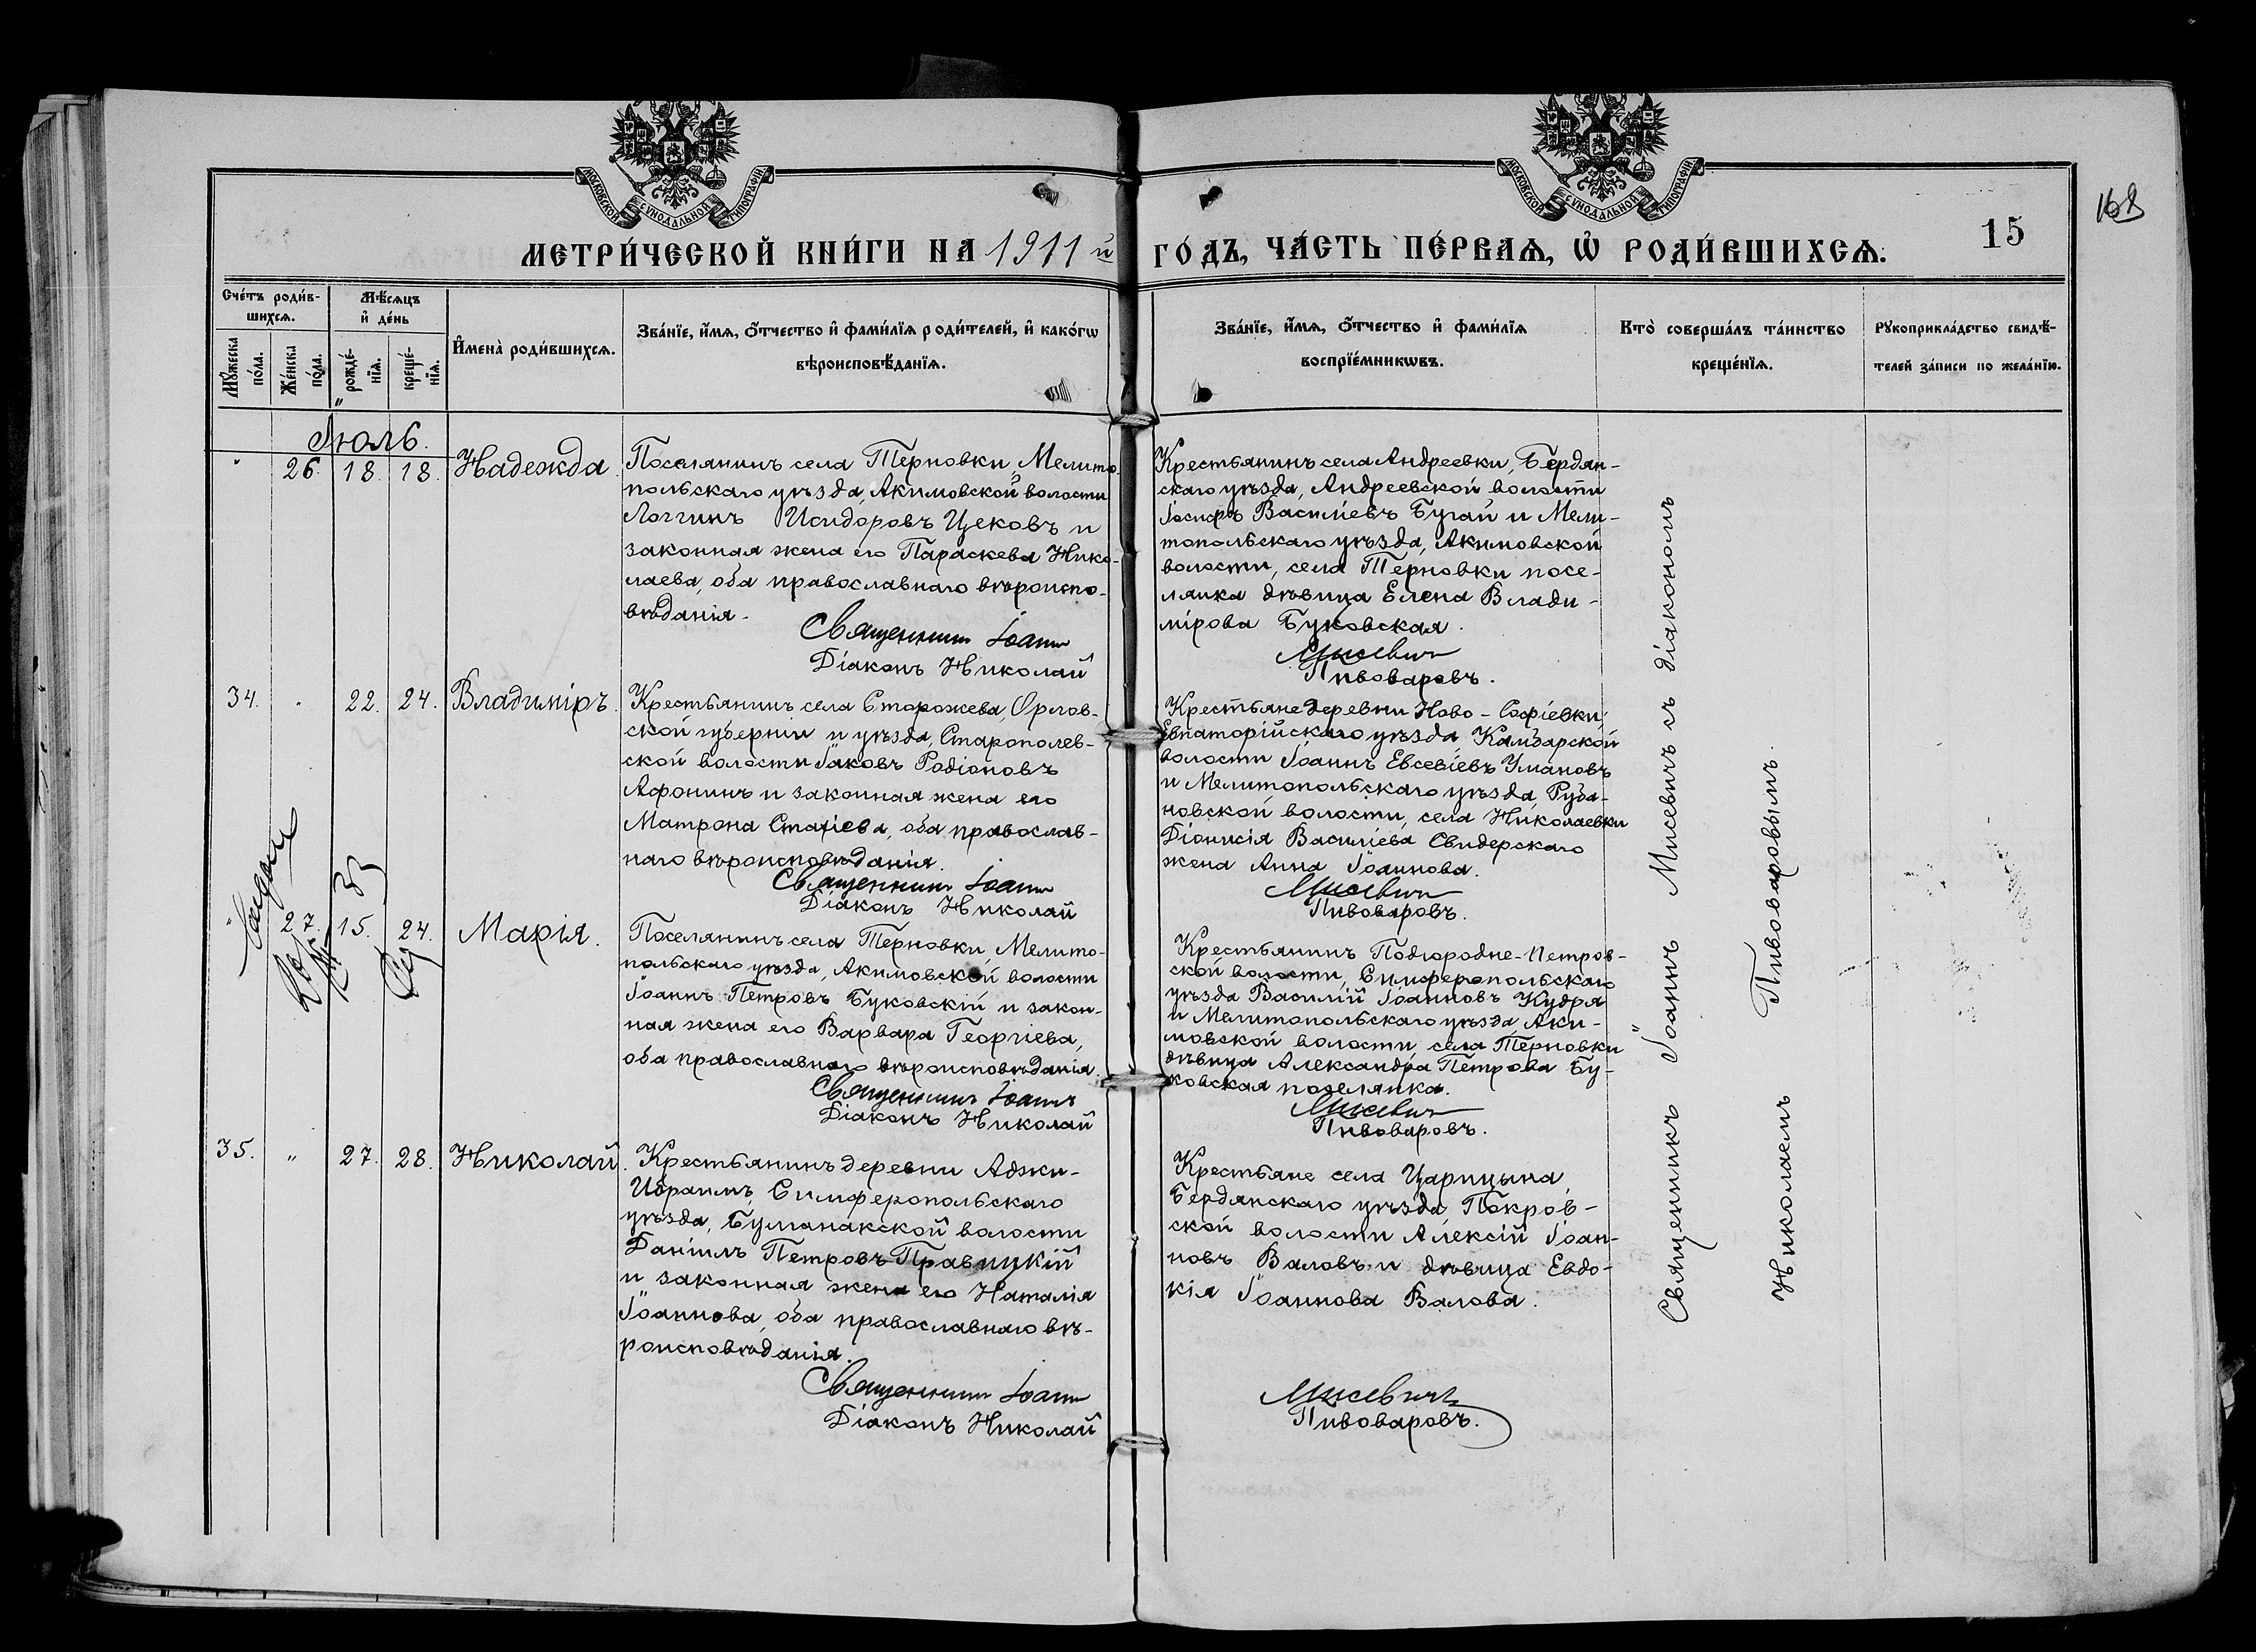 МОСКОВСКОЙ СѴНОДАЛЬНОЙ ТИПОГРАФІИ
МОСКОВСКОЙ СѴНОДАЛЬНОЙ ТИПОГРАФІИ
168
15
МЕТРИ́ЧЕСКОЙ КНИ́ГИ НА 1911 й ГО́ДЪ, ЧА́СТЬ ПЕ́РВАѦ, Ѡ҆ РОДИ́ВШИХСѦ.
Сче́тъ роди́в-
шихсѧ.
Мꙋ́жеска по́ла.
Же́нска по́ла.
Мѣ́сѧцъ
и҆ де́нь
рожде́-нїѧ.
креще́-нїѧ.
И҆мена̀ роди́вшихсѧ.
Зва́нїе, и҆́мѧ, ѻ҆́тчество и҆ фами́лїѧ роди́телей, и҆ како́гѡ
вѣроисповѣ́данїѧ.
Зва́нїе, и҆́мѧ, ѻ҆́тчество и҆ фами́лїѧ
воспрїе́мникѡвъ.
Кто̀ соверша́лъ та́инство
креще́нїѧ.
Рꙋкоприкла́дство свидѣ́-
телей за́писи по жела́нїю.
Іюль.
" 26. 18. 18. Надежда
Поселянинъ села Терновки, Мелито-
польскаго уѣзда, Акимовской волости
Логгинъ Исидоровъ Цековъ и
законная жена его Параскева Нико-
лаева, оба православнаго вѣроиспо-
вѣданія.
Священникъ Іоаннъ
Діаконъ Николай
Крестьянинъ села Андреевки, Бердян-
скаго уѣзда, Андреевской волости
Іосифъ Василіевъ Бугай и Мели-
топольскаго уѣзда, Акимовской
волости, села Терновки посе-
лянка дѣвица Елена Влади-
мірова Буковская.
Мисевич
Пивоваровъ.
34. " 22. 24. Владиміръ.
Крестьянинъ села Сторожева, Орлов-
ской губерніи и уѣзда, Старополев-
ской волости Іаковъ Родіоновъ
Афонинъ и законная жена его
Матрона Стахіева, оба православ-
наго вѣроисповѣданія.
Священникъ Іоаннъ
Діаконъ Николай
Крестьяне деревни Ново-Софіевки,
Евпаторійскаго уѣзда, Камбарской
волости Іоаннъ Евсевіевъ Умановъ
и Мелитопольскаго уѣзда, Руба-
новской волости, села Николаевки
Діонисія Василіева Свидерскаго
жена Анна Іоаннова.
Мисевич
Пивоваровъ.
" 27. 15. 24. Марія.
Поселянинъ села Терновки, Мелито-
польскаго уѣзда, Акимовской волости
Іоаннъ Петровъ Буковскій и закон-
ная жена его Варвара Георгіева,
оба православнаго вѣроисповѣданія.
Священникъ Іоаннъ
Діаконъ Николай
Крестьянинъ Подгородне-Петров-
ской волости, Симферопольскаго
уѣзда Василій Іоанновъ Кудря
и Мелитопольскаго уѣзда, Аки-
мовской волости села Терновки
дѣвица Александра Петрова Бу-
ковская поселянка.
Мисевич
Пивоваровъ.
35. " 27. 28. Николай.
Крестьянинъ деревни Аджи-
Ибраимъ, Симферопольскаго
уѣзда, Булганакской волости
Даніилъ Петровъ Правицкій
и законная жена его Наталія
Іоаннова, оба православнаго вѣ-
роисповѣданія.
Священникъ Іоаннъ
Діаконъ Николай
Крестьяне села Царицына,
Бердянскаго уѣзда, Покров-
ской волости Алексій Іоан-
новъ Валовъ и дѣвица Евдо-
кія Іоаннова Валова.
Мисевичъ
Пивоваровъ.
Священникъ Іоаннъ Мисевичъ съ діакономъ
Николаемъ Пивоваровымъ.